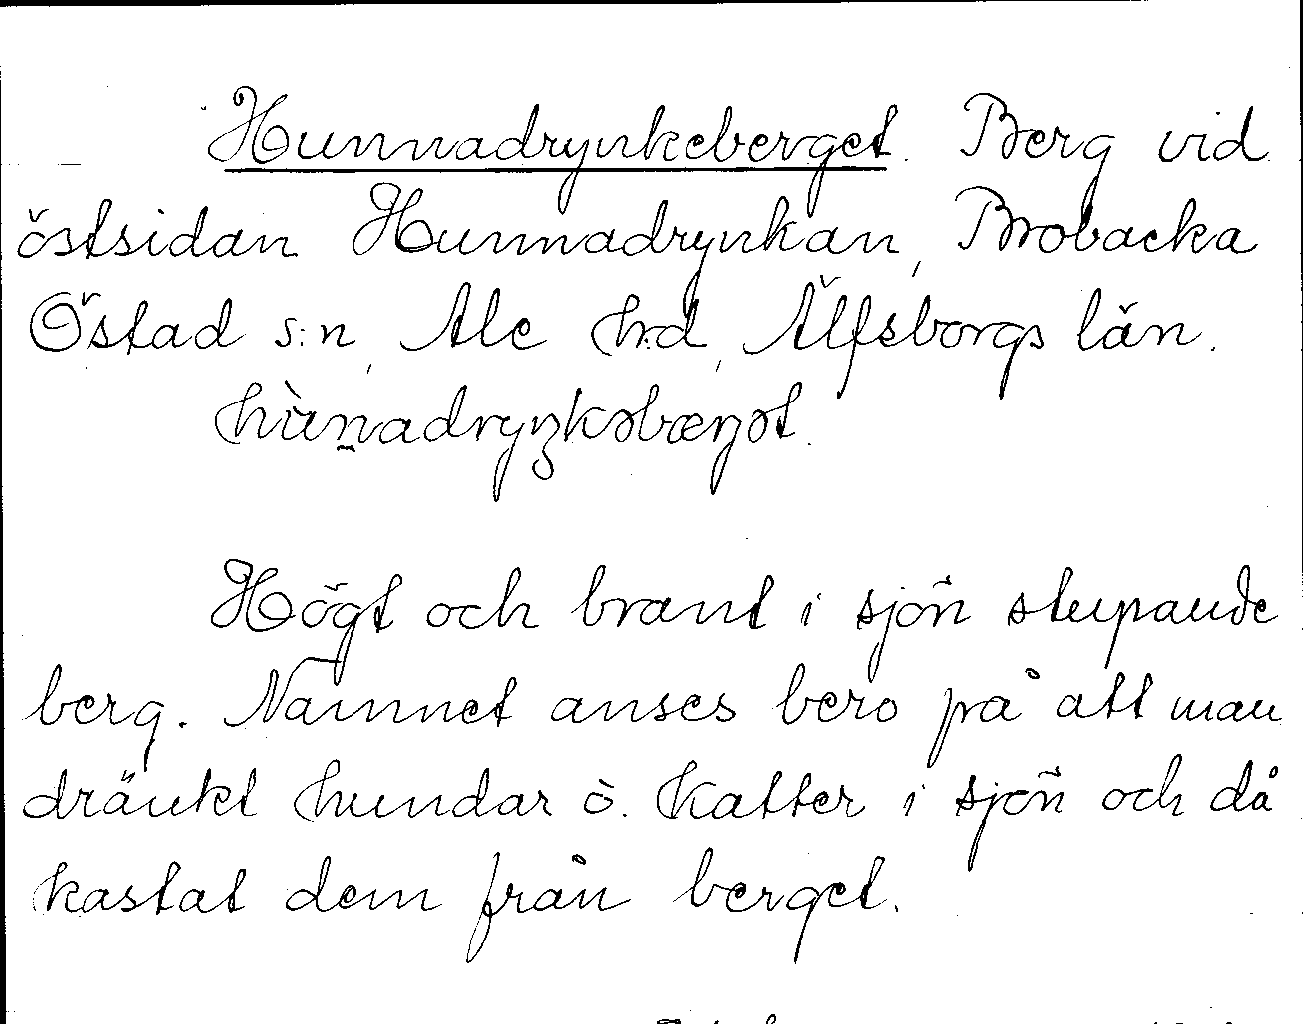 Hunnadrynkeberget. Berg vid
östsidan Hunnadrynkan, Brobacka
Östad s:n, Ale h:d, Älfsborgs län.
hùn̰adryŋkəbæŗət.
Högt och brant i sjön stupande
berg. Namnet anses bero på att man
dränkt hundar o. katter i sjön och då
kastat dem från berget.